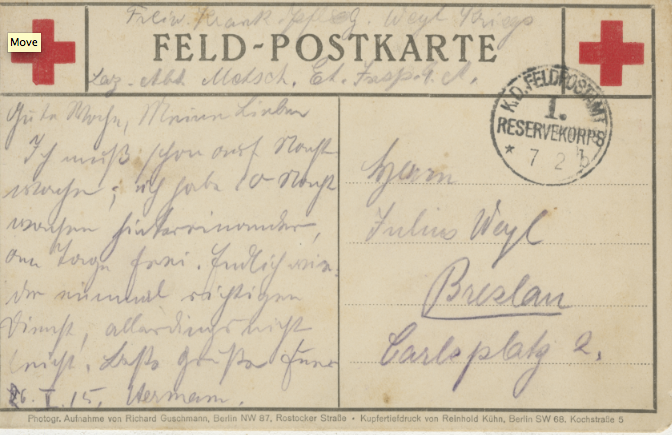 Move
Freiw. Krank. Pfleg. Weyl Kriegs
FELD-POSTKARTE
Laz. Abt. Motsch. Et.
K.D. FELDPOSTAMT
1.
RESERVEKORPS
* 7 2
Gute Woche, Meine Lieben
Ich muß schon auf Nacht
wache; ich habe 10 Nacht
wachen hintereinander,
am Tage frei. Endlich wie-
der einmal richtigen
Dienst, allerdings nicht
leicht. Beste Grüße Euer
Hermann.
Herrn
Julius Weyl
Breslau
Carlsplatz 2.
Photogr. Aufnahme von Richard Guschmann, Berlin NW 87, Rostocker Straße • Kupfertiefdruck von Reinhold Kühn, Berlin SW 68, Kochstraße 5